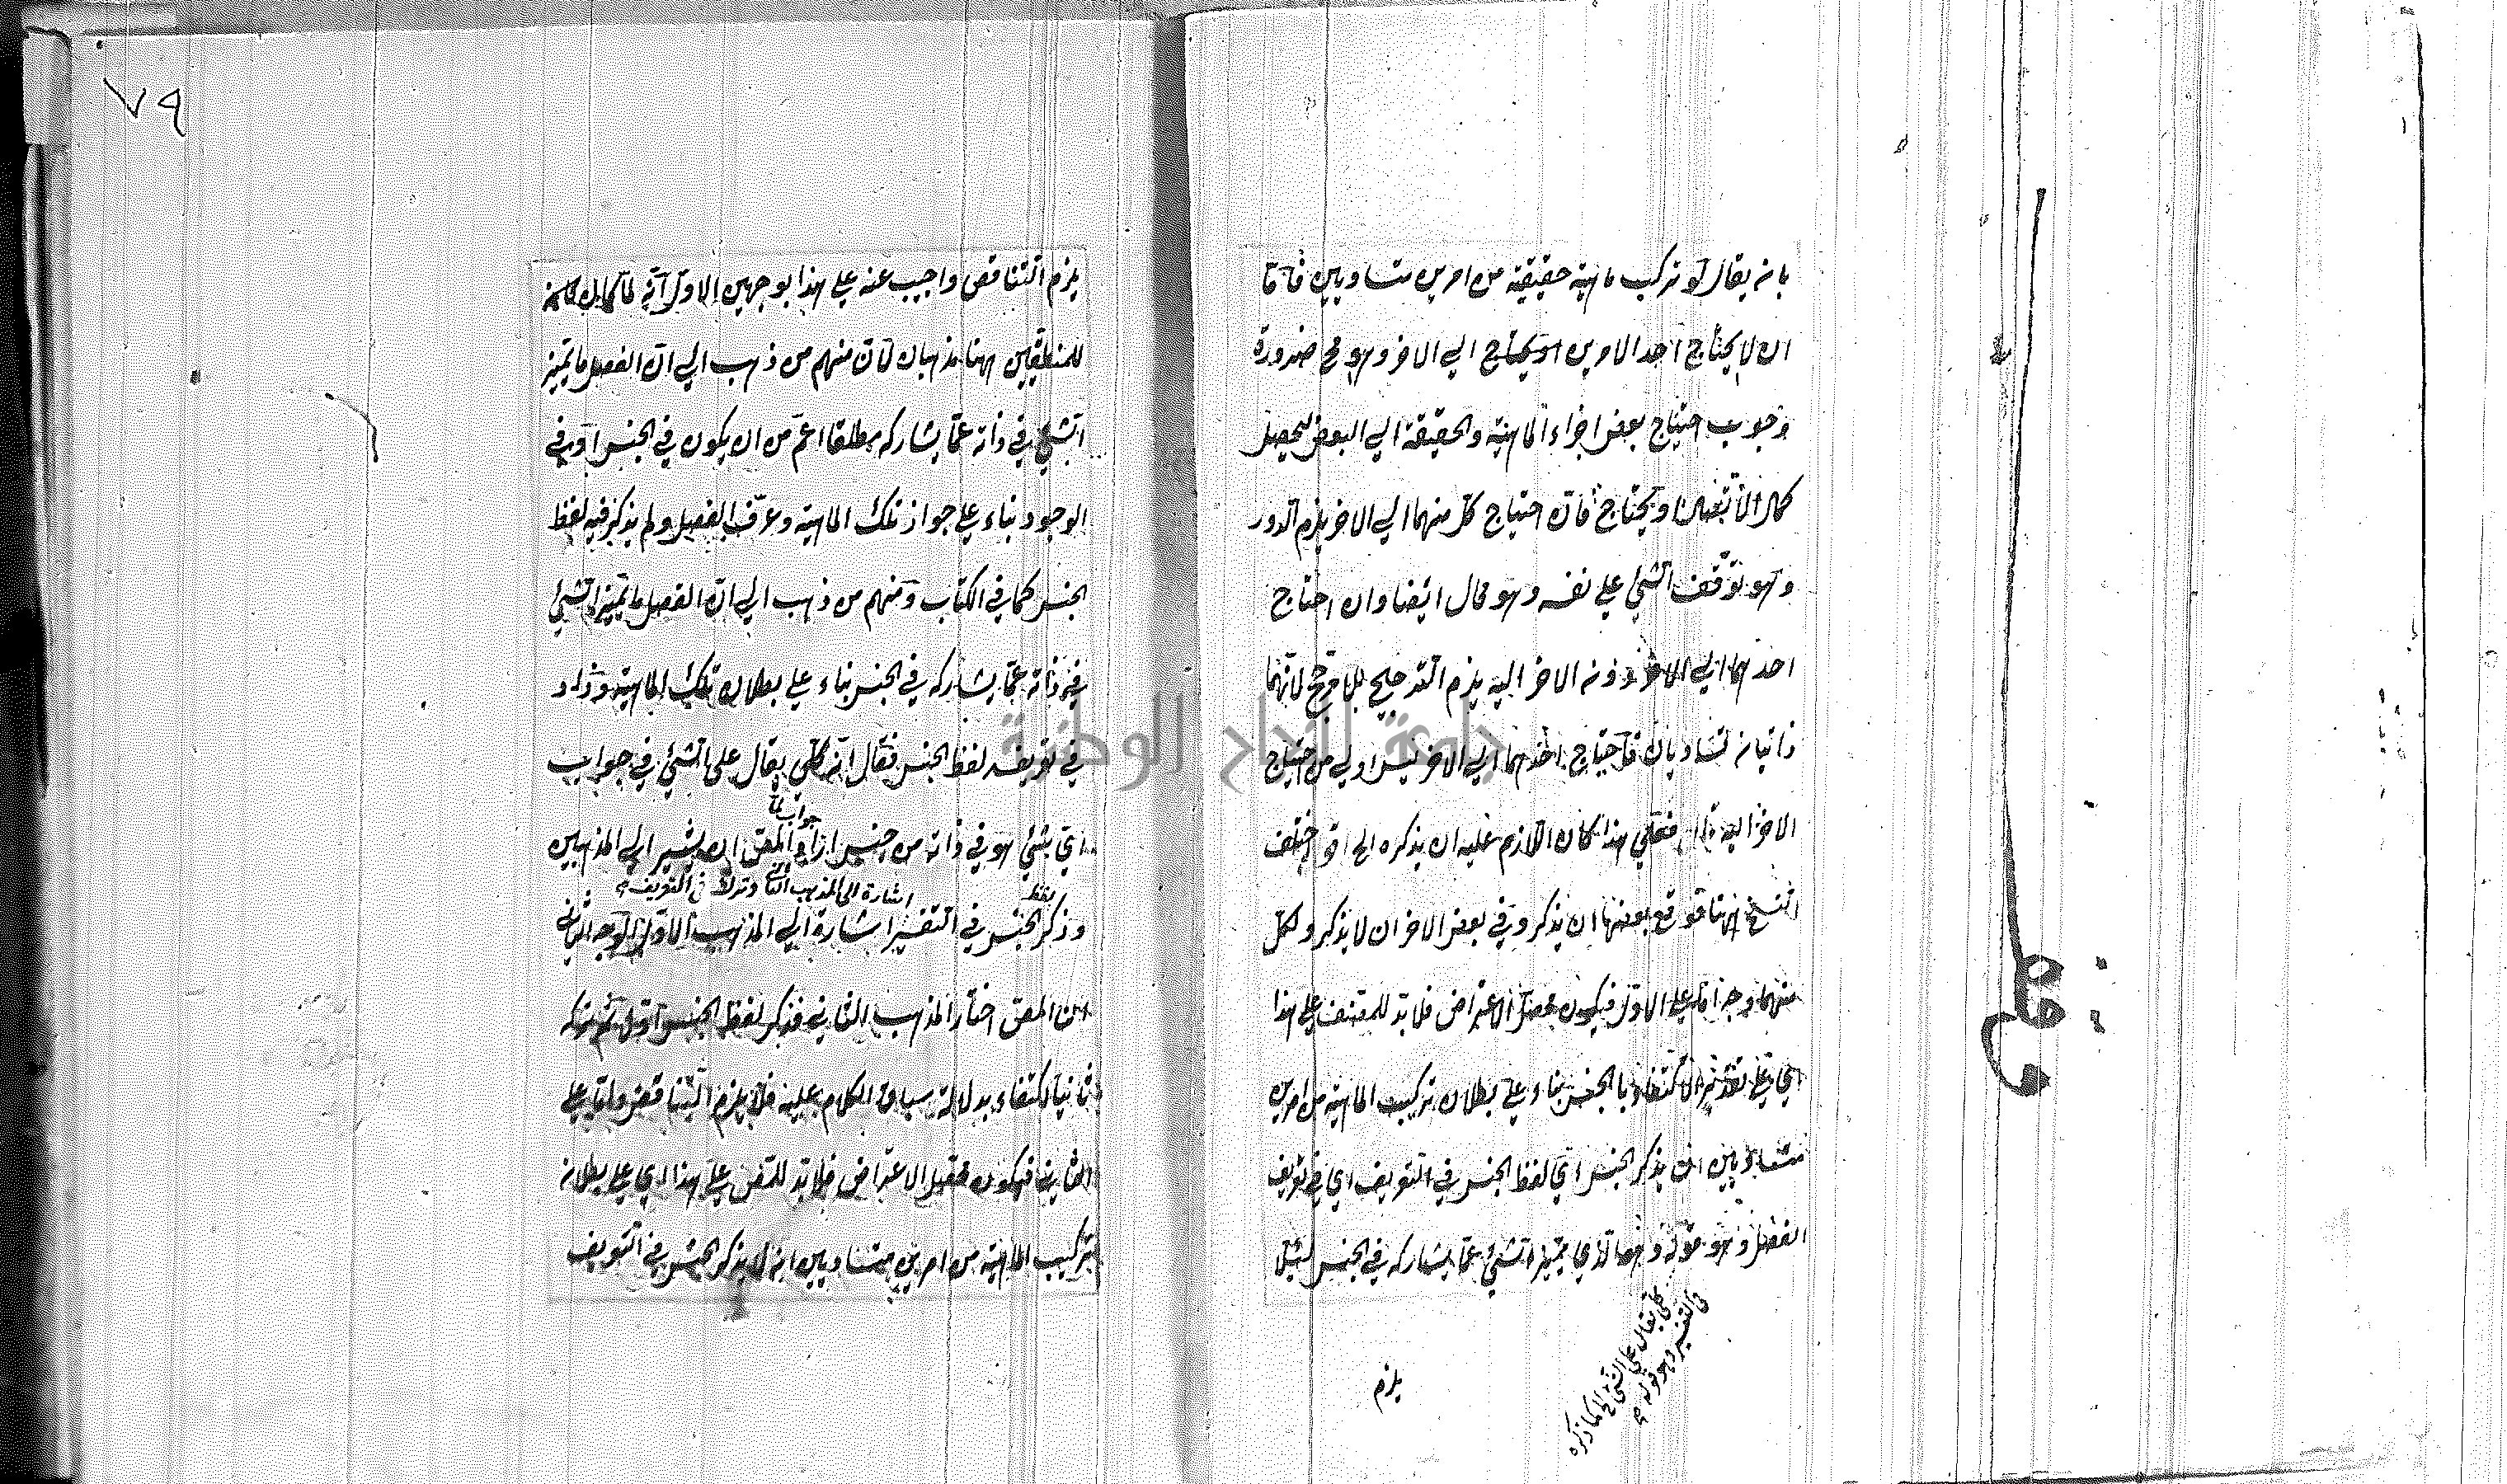 بانه يقال لو تركب ماهية حقيقية من امرين متساويين فاما
ان لا يحتاج احد الامرين او يحتاج الى الاخر وهو مح ضرورة
وجوب احتياج بعض اجزاء الماهية والحقيقة الى البعض ليحصل
او يحتاج فان احتياج كل منهما الى الاخر يلزم الدور
وهو توقف الشئ على نفسه وهو محال ايضا وان احتاج
احدهما الى الاخر دونه الاخر اليه يلزم الترجيح بلا مرجح لانهما
ذاتيان متساويان فاحتياج احدهما الى الاخر ليس اولى من احتياج
الاخر اليه فعلى هذا كان اللازم عليه ان يذكره الخ اقو اختلف
النسخ ههنا فوقع بعضها ان يذكر وفي بعض الاخر ان لا يذكر ولكل
منهما وجه اما على الاول فيكون محصل الاعتراض فلا بد للمصنف على هذا
اي على تقدير الاكتفاء بالجنس بناء على بطلان تركيب الماهية من امرين
متساويين ان يذكر الجنس اي لفظ الجنس في التعريف اي في تعريف
الفصل وهو قوله وهو الذي يميز الشئ عما يشاركه في الجنس لئلا
في التفسير وهو قوله
كلي يقال على الشئ الخ كما ذكره
يلزم
٧٩
يلزم التناقض واجيب عنه على هذا بوجهين الاول انه لما كان
للمنطقيين ههنا مذهبان كان منهم من ذهب الى ان الفصل ما يميز
الشئ في ذاته عما يشاركه مطلقا اعم من ان يكون في الجنس او في
الوجود بناء على جواز تلك الماهية وعرف الفصل ولم يذكر فيه لفظ
الجنس كما في الكتاب ومنهم من ذهب الى ان الفصل ما يميز الشئ
في ذاته عما يشاركه في الجنس بناء على بطلان تلك الماهية وزاد
في تعريفه لفظ الجنس فقال انه كلي يقال على الشئ في جواب
جواب لما
اي شئ هو في ذاته من جنس اراد المص ان يشير الى المذهبين
اشارة الى المذهب الثاني وترك في التعريف
لفظ
وذكر الجنس في التفسير اشارة الى المذهب الاول الوجه الثاني
ان المص اختار المذهب الثاني فذكر لفظ الجنس اولا ثم تركه
ثانيا اكتفاء بدلالة سياق الكلام عليه فلا يلزم التناقض واما على
الثاني فيكون محصل الاعتراض فلا بد للمص على هذا اي على بطلان
تركيب الماهية من امرين متساويين ان لا يذكر الجنس في التعريف
جامعة النجاح الوطنية